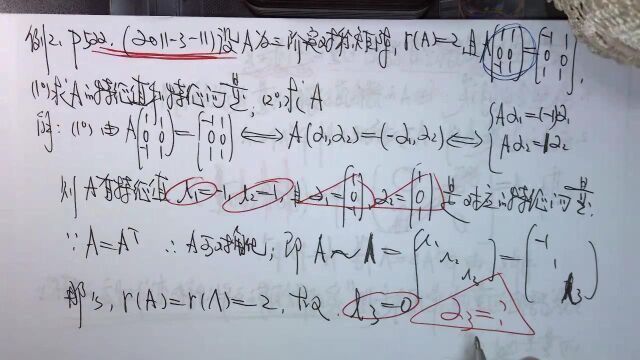 例2. P522, (2011-3-11)设A为三阶实对称矩阵, r(A)=2, 且A(1 1; 0 0; -1 1)=(-1 1; 0 0; 1 1),
(1)求A的特征值和特征向量; (2)求A
解: (1) 由A(1 1; 0 0; -1 1)=(-1 1; 0 0; 1 1) ⟺ A(α₁,α₂)=(-α₁,α₂) ⟺ {Aα₁=(-1)α₁ Aα₂=1α₂
则A有特征值 λ₁=-1, λ₂=1, 且α₁= α₂= 是对应的特征向量.
∵ A=Aᵀ ∴ A可对角化, 即 A∼Λ=(λ₁ λ₂ λ₃)=(-1 1 λ₃)
那么, r(A)=r(Λ)=2, 故 λ₃=0 α₃=?